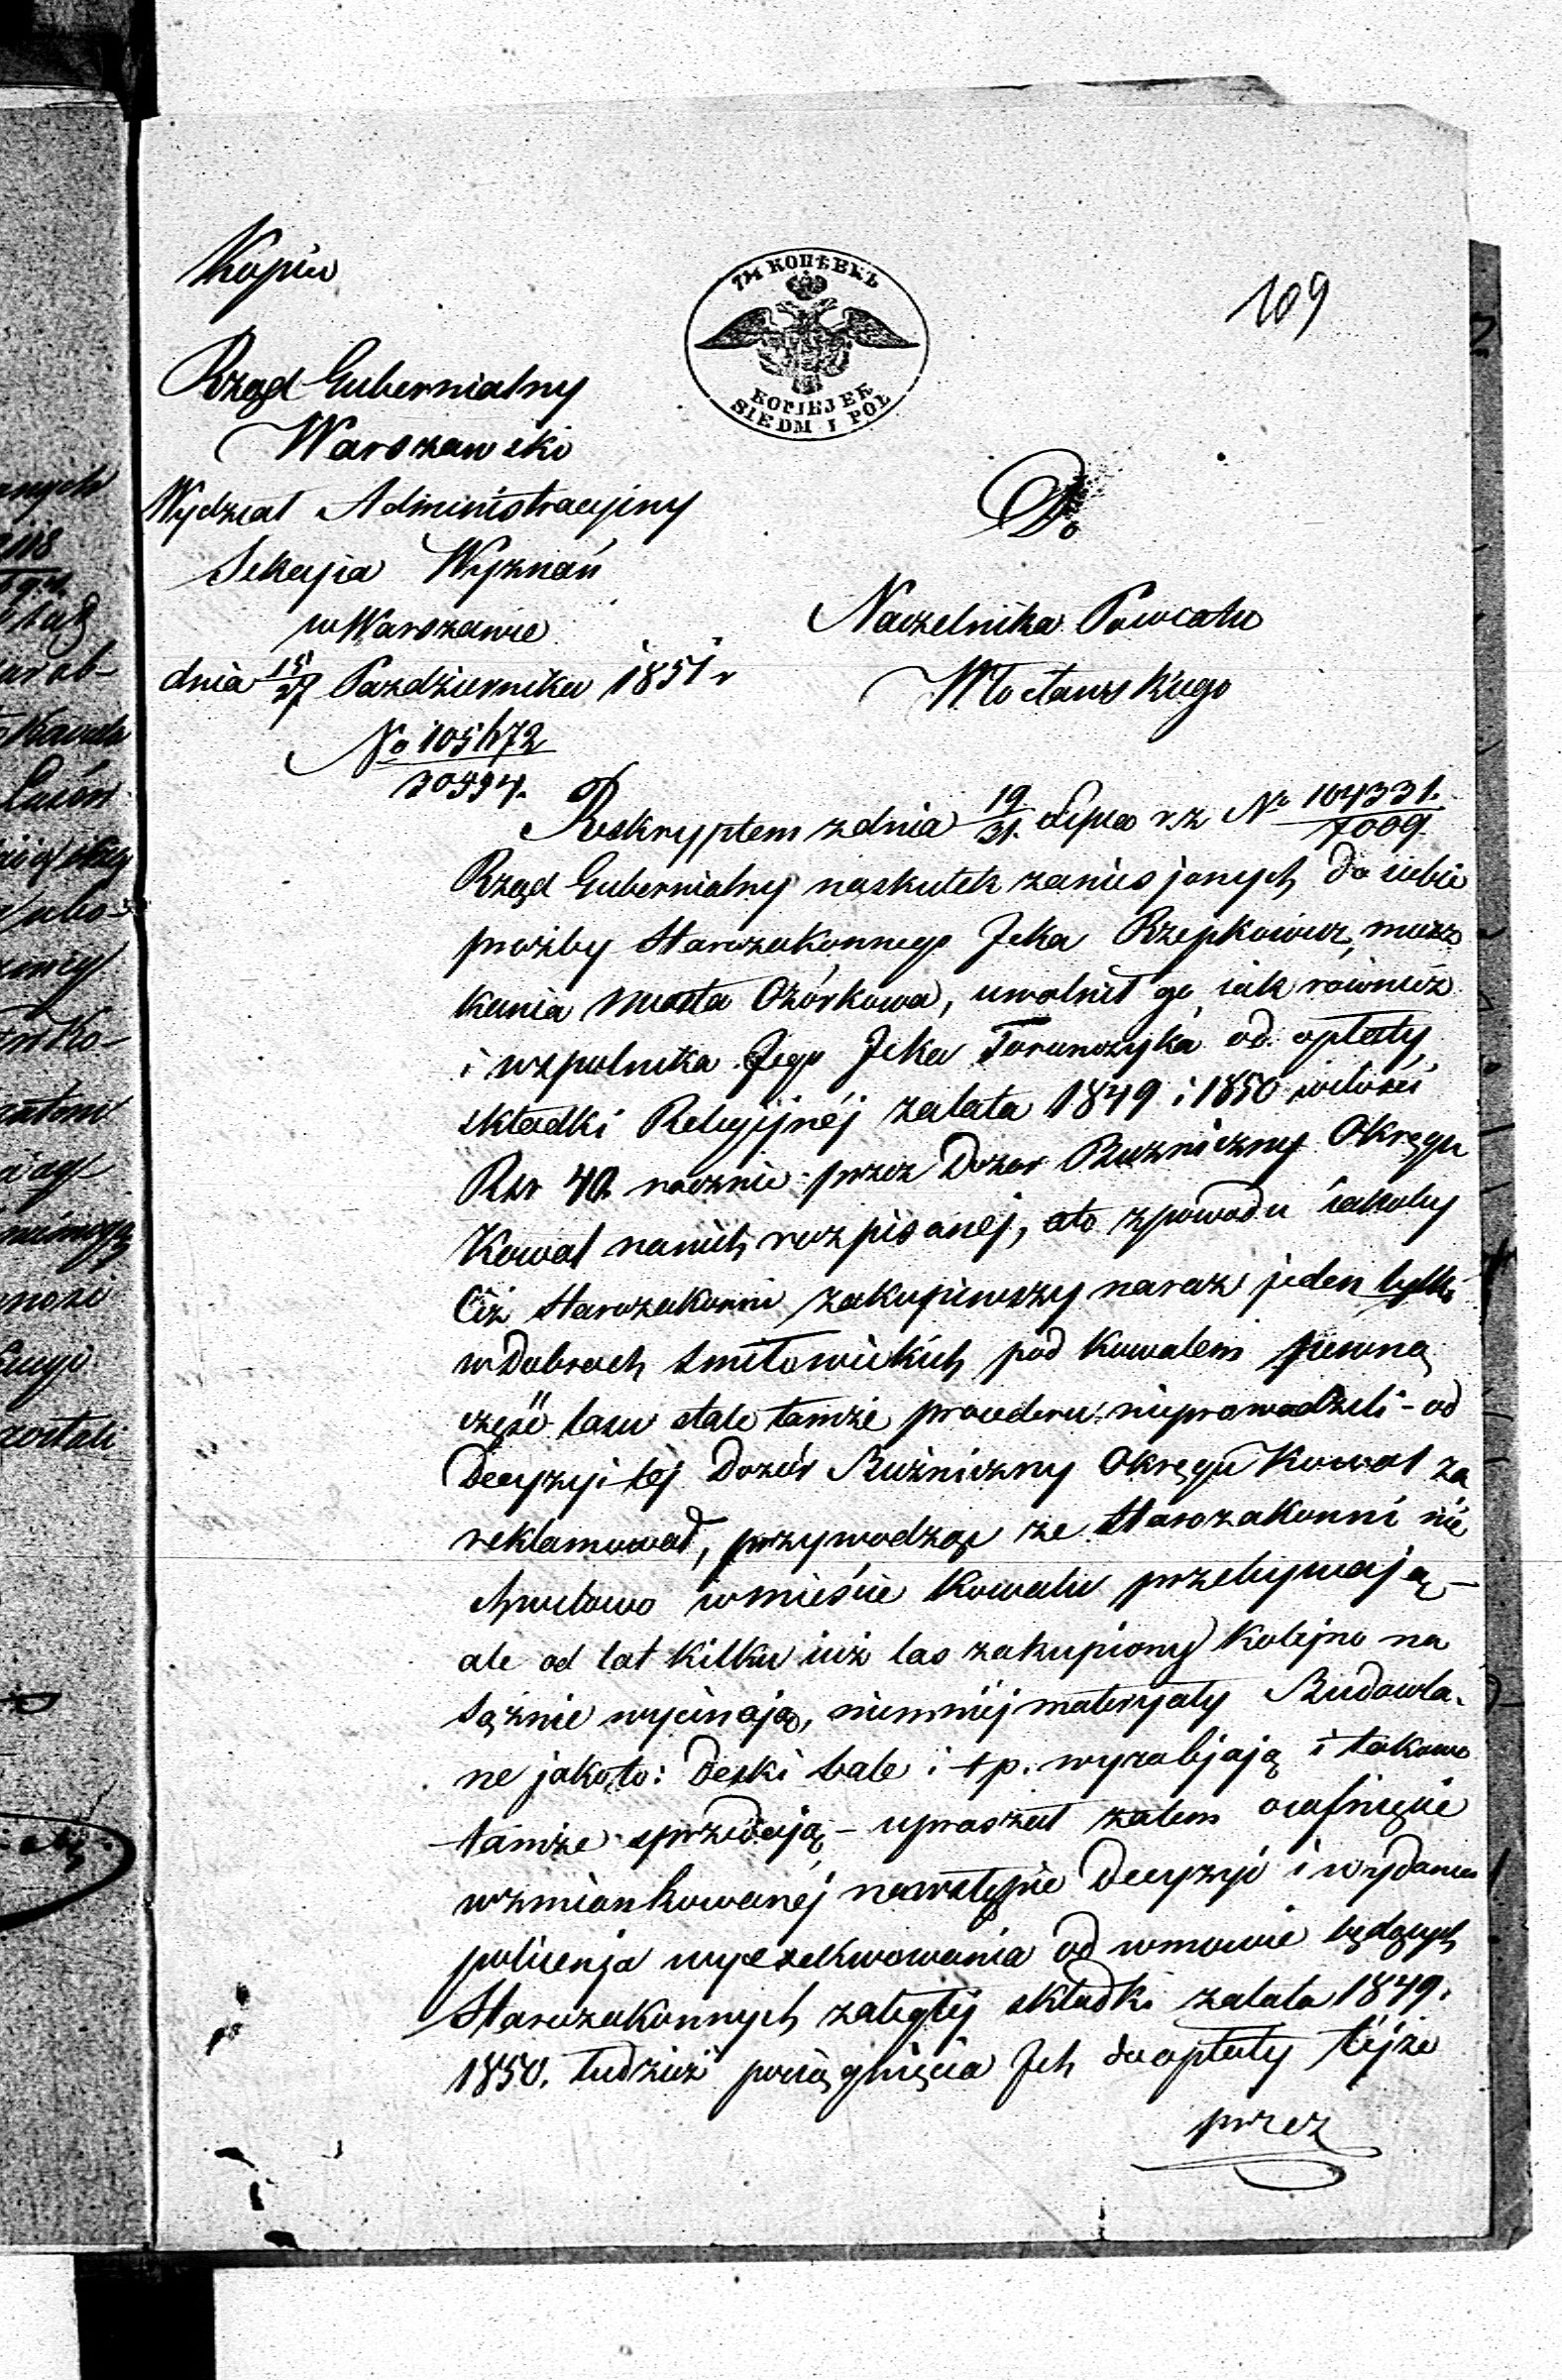 Kopia
7½ КОПѢЕКЪ
KOPIEJEK
SIEDM I POŁ
109
Rząd Gubernialny
Warszawski
Wydział Administracyjny
Sekcyia Wyznań
w Warszawie
dnia 15/27 Pazdziernika 1851 r
Do
Naczelnika Powiatu
Włocławskiego
No
Reskryptem z dnia 19/31. Lipca r. z No 104331./7009.
Rząd Gubernialny naskutek zaniesjonych do siebie
prożby Starozakonnego Jcka Rzepkowicz, miesz
kania miasta Ozórkowa, uwolnił go iak równieź
i wspolnika Jego Jcka Torunczyka od opłaty
składki Religijnéj zalata 1849 i 1850 wilości
Rsr 40. rocznie przez Dozor Buzniczny Okręgu
Kowal nanich rozpisanej, ato zpowodu iakoby
Ciż Starozakonni zakupiwszy naraz jeden tylko
w Dobrach Smiłowickich pod Kowalem pewną
część lasu stale tamże procederu nieprowadzili - od
Decyzyi téj Dozór Bużniczny Okręgu Kowal za
reklamował, przywodząc ze Starozakonni nie
chwilowo wmieście Kowalu przebywają -
ale od lat kilku iuż las zakupiony kolejno na
sążnie wycinają, niemniéj materyały Budowla-
ne jakoto: Deski bale i t p. wyrabjają i takowe
tamże sprzedają - upraszał zatem o cofnięcie
wzmiankowanéj nawstępie Decyzyi i wydanie
polecenja wyexekwowania od wmowie będących
Starozakonnych zaległéj składki zalata 1849.
1850. tudzież pociągnięcia Jch do opłaty téjże
przez